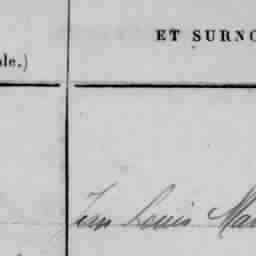 ET SURNO
ble.)
Jean Louis Mar